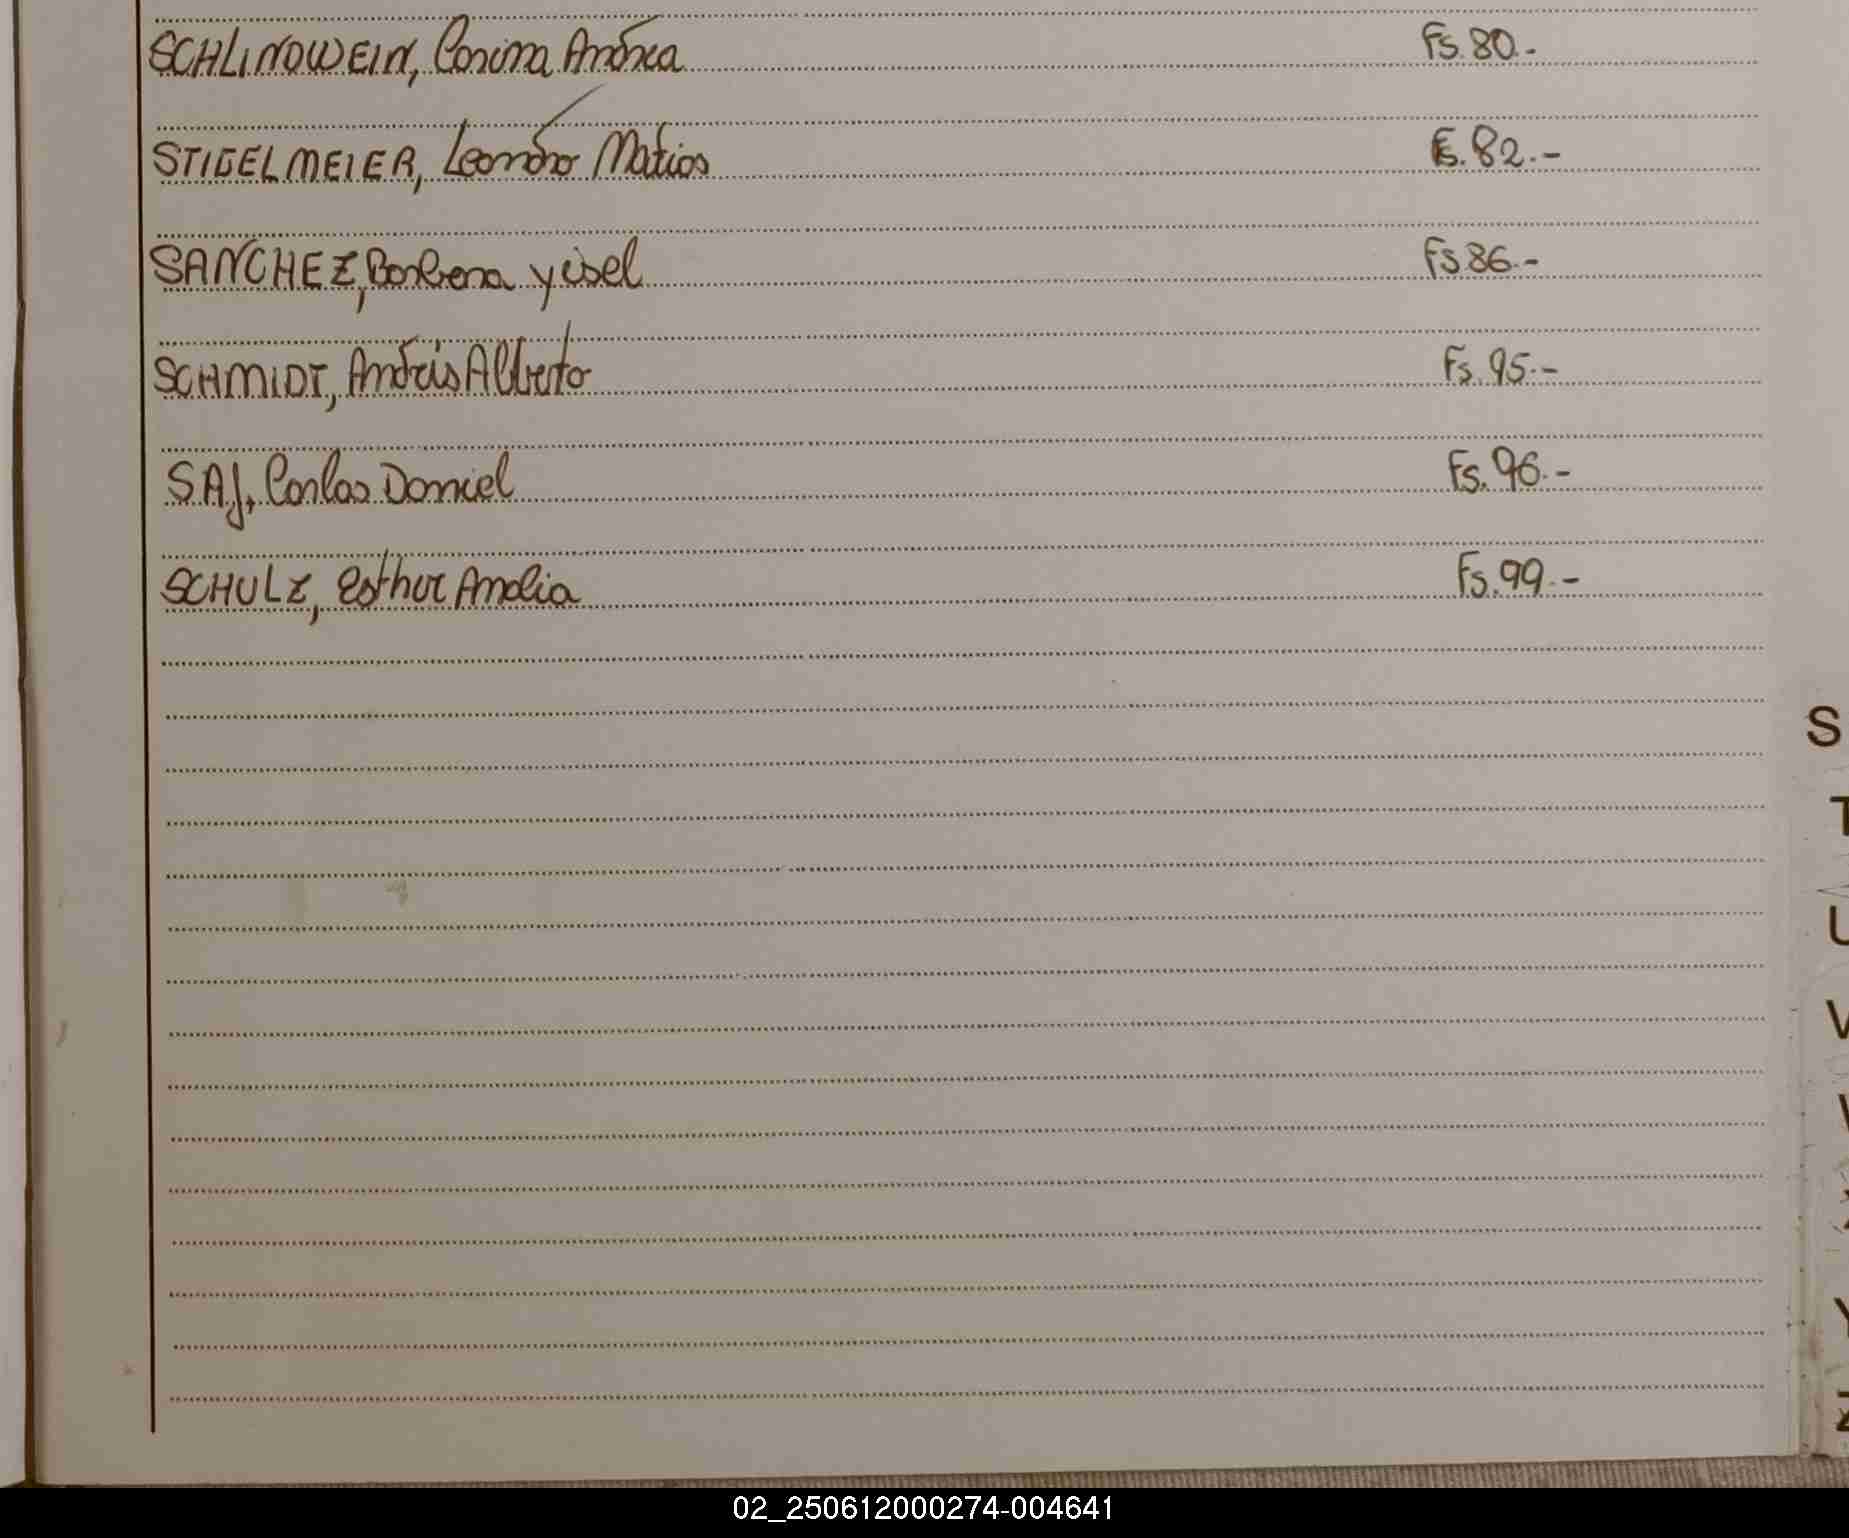 SCHLINDWEIN, Corina Andrea Fs. 80.-
STIGELMEIER, Leandro Matias Fs. 82.-
SANCHEZ, Barbara yisel Fs 86.-
SCHMIDT, Andrés Alberto Fs. 95.-
SAJ, Carlos Daniel Fs. 96.-
SCHULZ, Esther Analia Fs. 99.-
S
T
U
V
W
X
Y
Z
02_250612000274-004641